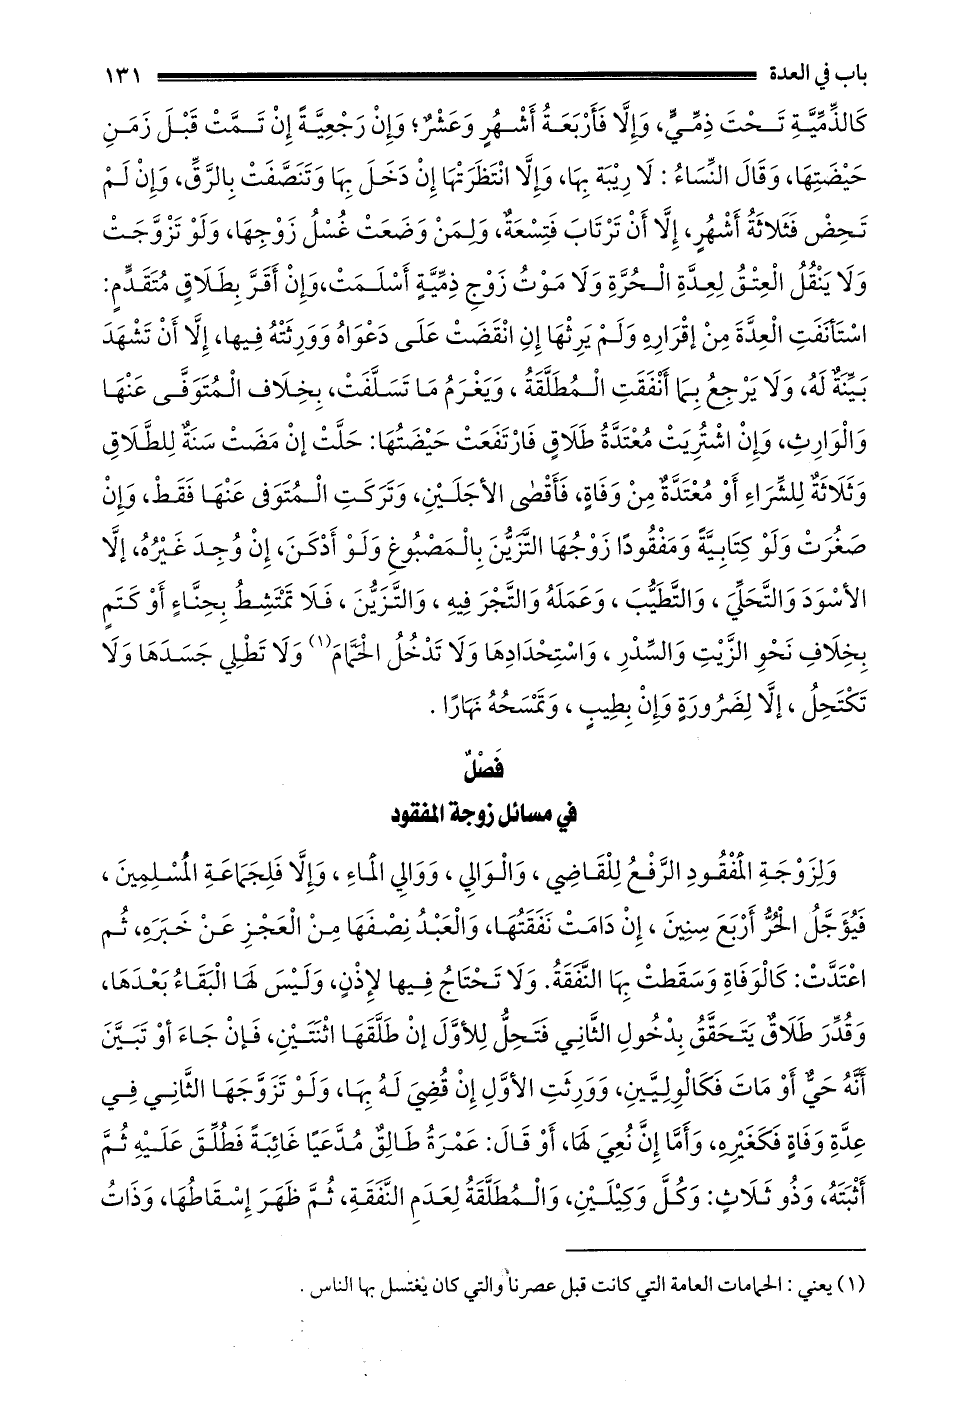 باب في العدة ١٣١
كَالذِّمِّيَّةِ تَحْتَ ذِمِّيٍّ، وَإِلَّا فَأَرْبَعَةُ أَشْهُرٍ وَعَشْرٌ؛ وَإِنْ رَجْعِيَّةً إِنْ تَمَّتْ قَبْلَ زَمَنِ
حَيْضَتِهَا، وَقَالَ النِّسَاءُ : لَا رِيْبَةَ بِهَا، وَإِلَّا انْتَظَرَتْهَا إِنْ دَخَلَ بِهَا وَتَنَصَّفَتْ بِالرَّقِّ، وَإِنْ لَمْ
تَحِضْ فَثَلَاثَةُ أَشْهُرٍ، إِلَّا أَنْ تَرْتَابَ فَتِسْعَةٌ، وَلِمَنْ وَضَعَتْ غُسْلُ زَوْجِهَا، وَلَوْ تَزَوَّجَتْ
وَلَا يَنْقُلُ الْعِتْقُ لِعِدَّةِ الْحُرَّةِ وَلَا مَوْتُ زَوْجِ ذِمِّيَّةٍ أَسْلَمَتْ،وَإِنْ أَقَرَّ بِطَلَاقٍ مُتَقَدِّمٍ:
اسْتَأْنَفَتِ الْعِدَّةَ مِنْ إِقْرَارِهِ وَلَمْ يَرِثْهَا إِنِ انْقَضَتْ عَلَى دَعْوَاهُ وَوَرِثَتْهُ فِيها، إِلَّا أَنْ تَشْهَدَ
بَيِّنَةٌ لَهُ، وَلَا يَرْجِعُ بِمَا أَنْفَقَتِ الْمُطَلَّقَةُ ، وَيَغْرَمُ مَا تَسَلَّفَتْ، بِخِلَافِ الْمُتَوَفَّى عَنْهَا
وَالْوَارِثِ، وَإِنْ اشْتُرِيَتْ مُعْتَدَّةُ طَلَاقٍ فَارْتَفَعَتْ حَيْضَتُهَا: حَلَّتْ إِنْ مَضَتْ سَنَةٌ لِلطَّلَاقِ
وَثَلَاثَةٌ لِلشِّرَاءِ أَوْ مُعْتَدَّةٌ مِنْ وَفَاةٍ، فَأَقْصٰى الأَجَلَيْنِ، وَتَرَكَتِ الْمُتَوَفى عَنْهَا فَقَطْ، وَإِنْ
صَغُرَتْ وَلَوْ كِتَابِيَّةً وَمَفْقُودًا زَوْجُهَا التَّزَيُّنَ بِالْمَصْبُوغِ وَلَوْ أَدْكَنَ، إِنْ وُجِدَ غَيْرُهُ، إِلَّا
الأَسْوَدَ وَالتَّحَلِّيَ ، وَالتَّطَيُّبَ ، وَعَمَلَهُ وَالتَّجْرَ فِيهِ ، وَالتَّزَيُّنَ ، فَلَا تَمْتَشِطُ بِحِنَّاءٍ أَوْ كَتَمٍ
بِخِلَافِ نَحْوِ الزَّيْتِ وَالسِّدْرِ ، وَاسْتِحْدَادِهَا وَلَا تَدْخُلُ الْحَمَّامَ(١) وَلَا تَطْلِي جَسَدَهَا وَلَا
تَكْتَحِلُ ، إِلَّا لِضَرُورَةٍ وَإِنْ بِطِيبٍ ، وَتَمْسَحُهُ نَهَارًا .
فَصْلٌ
في مسائل زوجة المفقود
وَلِزَوْجَةِ الْمَفْقُودِ الرَّفْعُ لِلْقَاضِي ، وَالْوَالِي ، وَوَالِي الْمَاءِ ، وَإِلَّا فَلِجَمَاعَةِ الْمُسْلِمِينَ ،
فَيُؤَجَّلُ الْحُرُّ أَرْبَعَ سِنِينَ ، إِنْ دَامَتْ نَفَقَتُهَا، وَالْعَبْدُ نِصْفَهَا مِنْ الْعَجْزِ عَنْ خَبَرِهِ، ثُم
اعْتَدَّتْ: كَالْوَفَاةِ وَسَقَطَتْ بِهَا النَّفَقَةُ. وَلَا تَحْتَاجُ فِيها لِإِذْنٍ، وَلَيْسَ لَهَا الْبَقَاءُ بَعْدَهَا،
وَقُدِّرَ طَلَاقٌ يَتَحَقَّقُ بِدُخُولِ الثَّانِي فَتَحِلُّ لِلأَوَّلَ إِنْ طَلَّقَهَا اثْنَتَيْنِ، فَإِنْ جَاءَ أَوْ تَبَيَّنَ
أَنَّهُ حَيٌّ أَوْ مَاتَ فَكَالْوَلِيَّينِ، وَوَرِثَتِ الأَوَّلَ إِنْ قُضِيَ لَهُ بِهَا، وَلَوْ تَزَوَّجَهَا الثَّانِي فِي
عِدَّةِ وَفَاةٍ فَكَغَيْرِهِ، وَأَمَّا إِنَّ نُعِيَ لَهَا، أَوْ قَالَ: عَمْرَةُ طَالِقٌ مُدَّعِيًا غَائِبَةً فَطُلِّقَ عَلَيْهِ ثُمَّ
أَثْبَتَهُ، وَذُو ثَلَاثٍ: وَكَّلَ وَكِيلَيْنِ، وَالْمُطَلَّقَةُ لِعَدَمِ النَّفَقَةِ، ثُمَّ ظَهَرَ إِسْقَاطُهَا، وَذَاتُ
(١) يعني : الحمامات العامة التي كانت قبل عصرنا والتي كان يغتسل بها الناس .